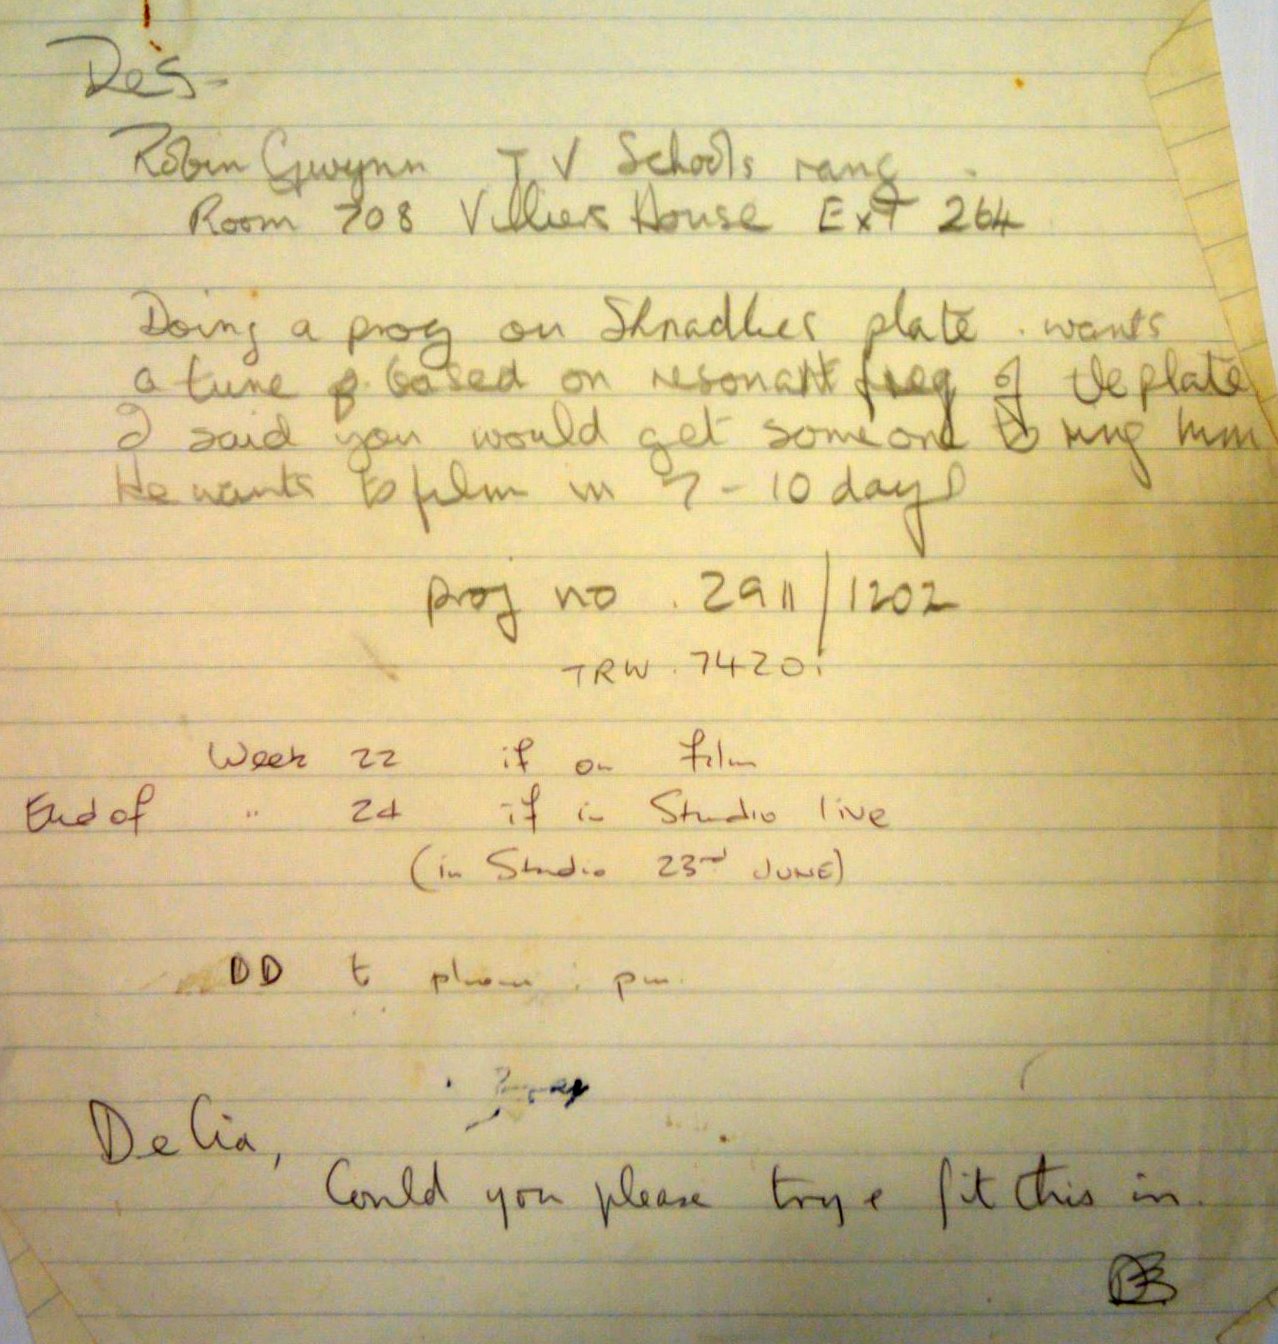 Des -
Robin Gwynn TV Schools rang.
Room 708 Villiers House Ext 264
Doing a prog on Shnadlies plate. wants
a tune based on resonant freq of the plate
I said you would get someone to ring him
He wants to film in 7-10 days
proj no. 2911/1202
TRW. 7420.
Week 22 if on film
End of " 24 if in Studio live
(in Studio 23rd JUNE)
DD to phone pm.
Delia,
Could you please try & fit this in.